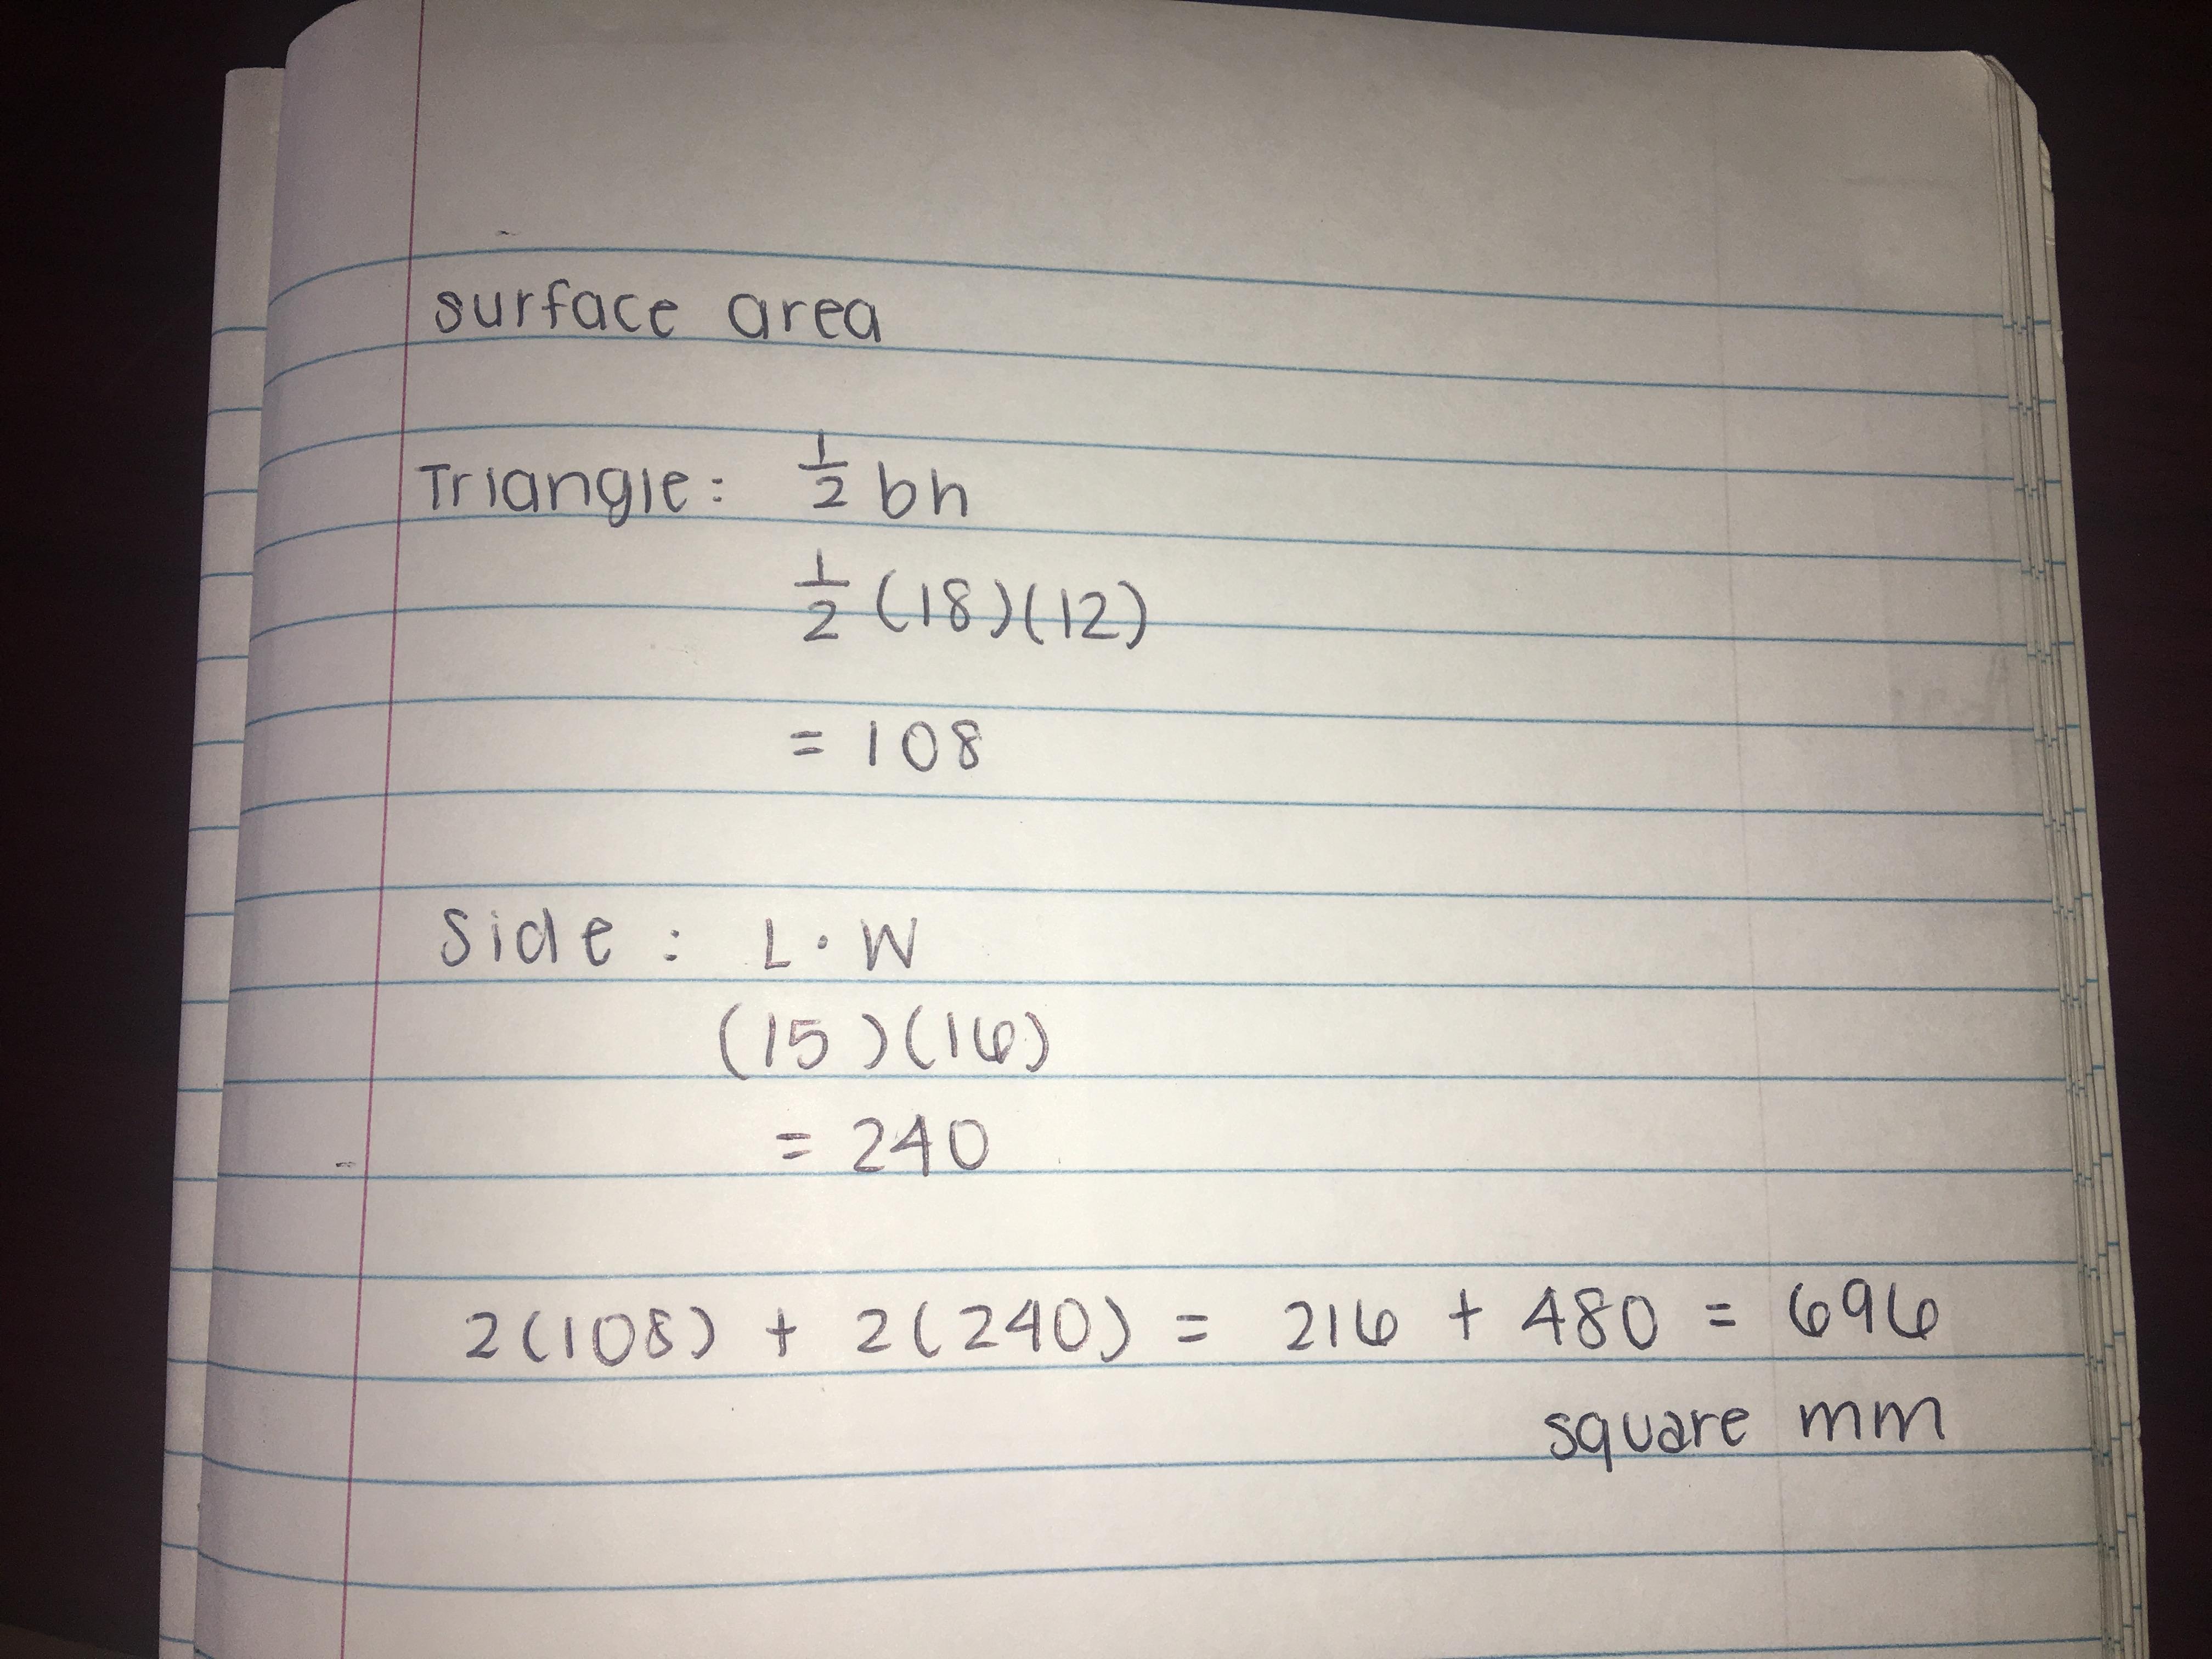 surface area
Triangle: 1/2 bh
1/2 (18)(12)
= 108
Side : L · W
(15)(16)
= 240
2(108) + 2(240) = 216 + 480 = 696
square mm